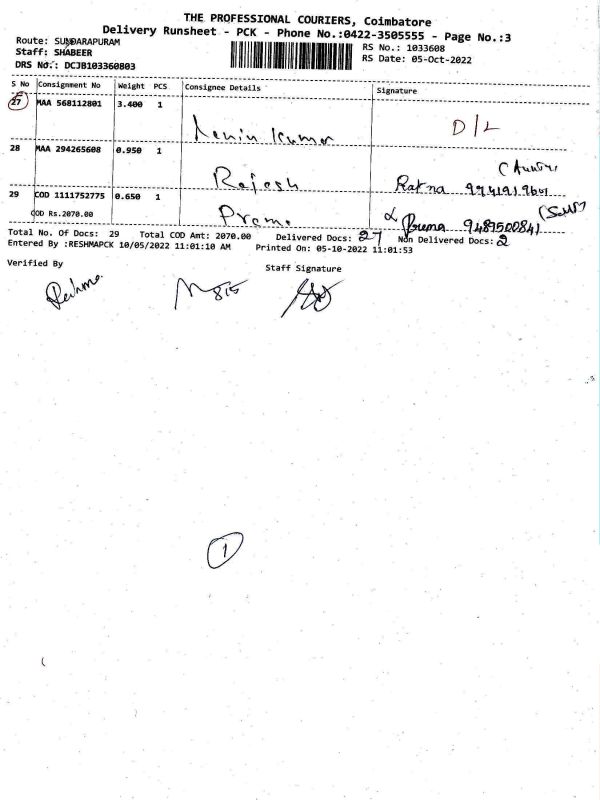 THE PROFESSIONAL COURIERS, Coimbatore
Delivery Runsheet - PCK - Phone No.:0422-3505555 - Page No.:3
Route: SUNDARAPURAM
Staff: SHABEER
DRS No.: DCJB103360803
RS No.: 1033608
RS Date: 05-Oct-2022
S No Consignment No Weight PCS Consignee Details Signature
27 MAA 568112801 3.400 1 Kumar D/L
28 MAA 294265608 0.950 1 Rajesh Ratna
29 COD 1111752775 0.650 1 Prema Prema 9489500841
COD Rs.2070.00
Total No. Of Docs: 29 Total COD Amt: 2070.00 Delivered Docs: 27 Non Delivered Docs: 2
Entered By :RESHMAPCK 10/05/2022 11:01:10 AM Printed On: 05-10-2022 11:01:53
Verified By Staff Signature
1